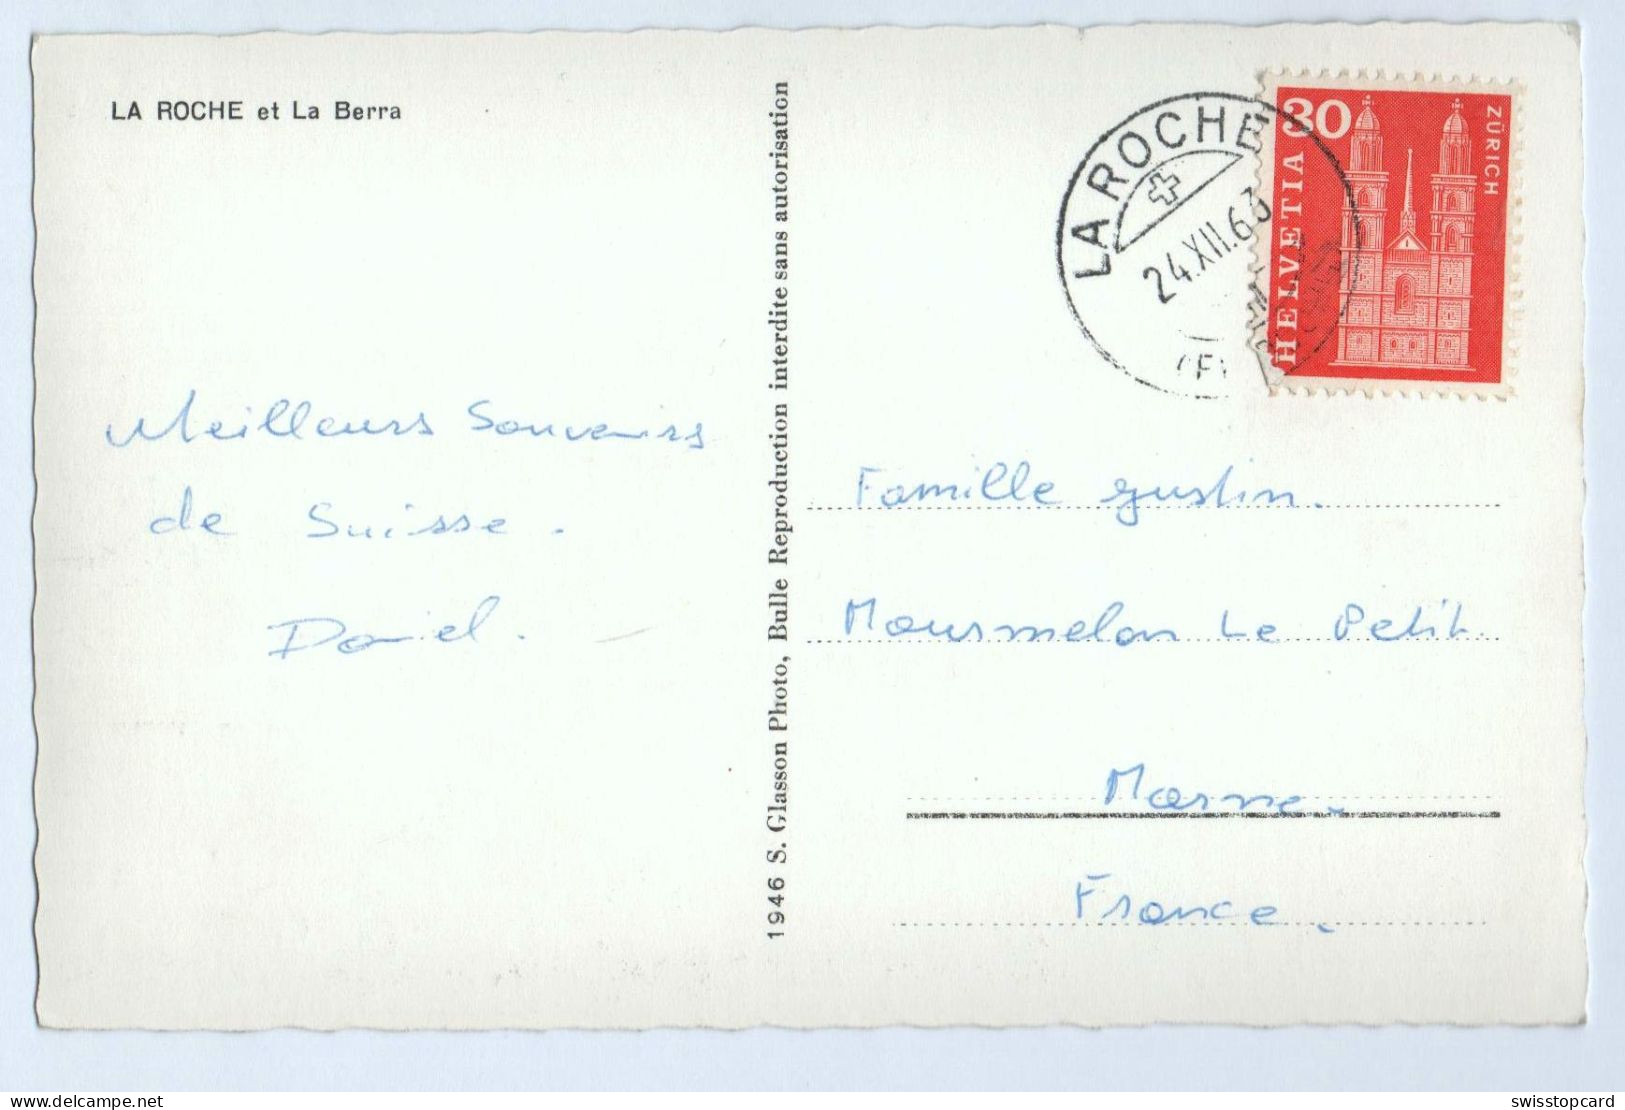 LA ROCHE et La Berra
Meilleurs Souvenirs
de Suisse.
Daniel.
1946 S. Glasson Photo, Bulle Reproduction interdite sans autorisation
LA ROCHE
24.XII.63
30
HELVETIA
ZÜRICH
Famille Gustin.
Mourmelon Le Petit.
Marne.
France.
swisstopcard